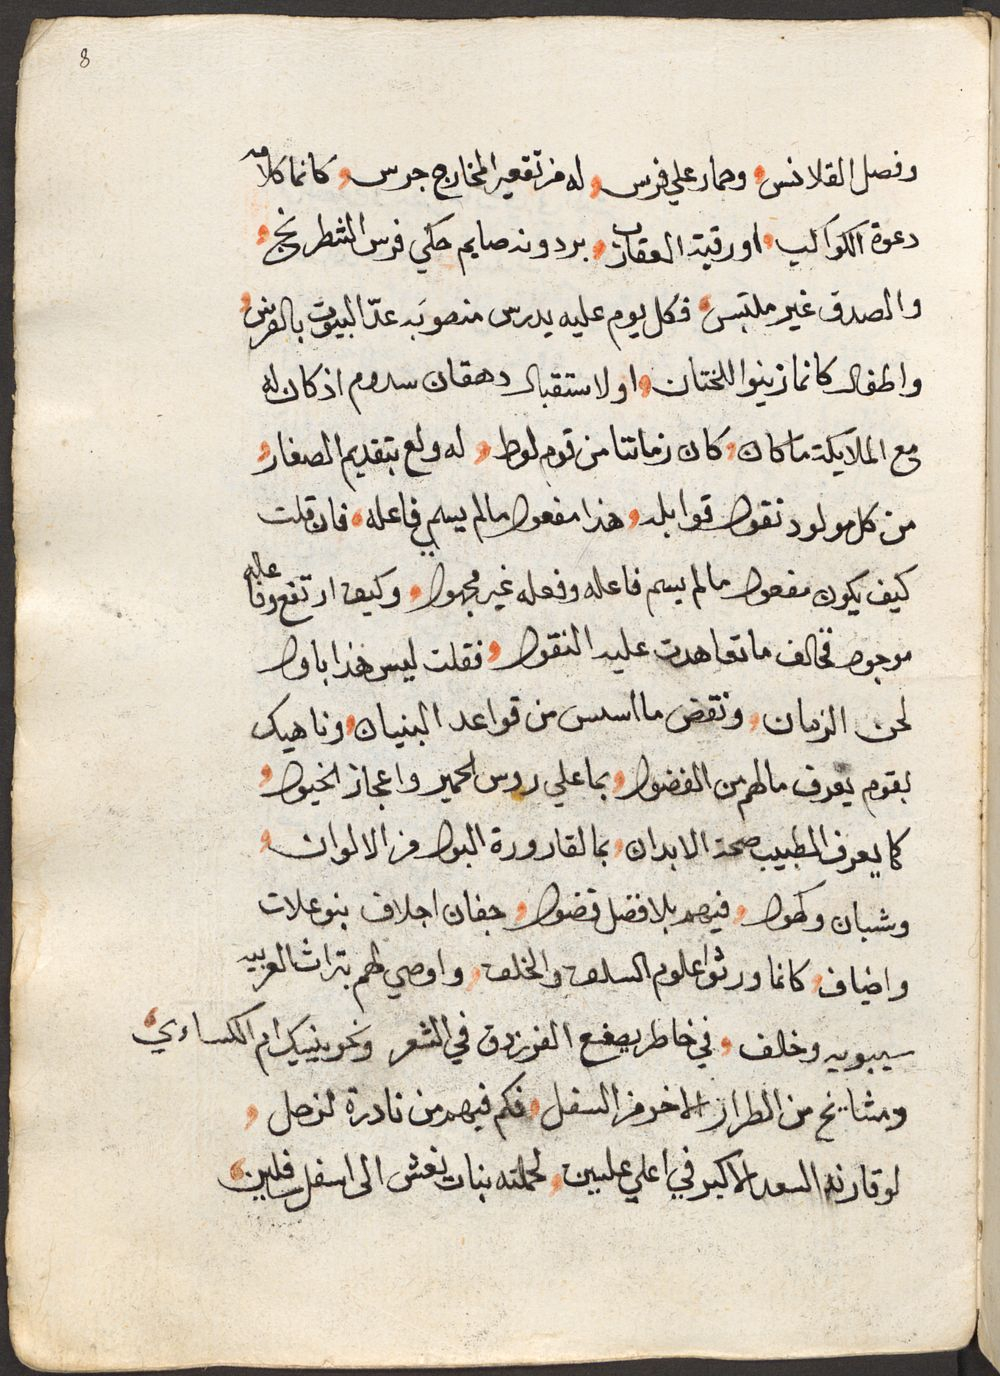 8
وفصل القلانس، وحمار علي فرس، له من تقعير المخارج جرس، كانما كلامه
دعوة الكواكب، او رقية العقارب، بردونه صايم حكي فرس الشطرنج،
والصدق غير ملتبس، فكل يوم عليه يدرس منصوبه عدّ البيوت بالفرس،
واطفال كانما زينوا للختان، او لاستقبال دهقان سدوم اذ كان له
مع الملايكة ما كان، كان زماننا من قوم لوط، له ولع بتقديم الصغار،
من كل مولود نقول قوابله، هذا مفعول ما لم يسم فاعله، فان قلت
كيف يكون مفعول ما لم يسم فاعله وفعله غير مجهول، وكيف ارتفع وفاعله
موجود فخالف ما تعاهدت عليه النقول، فقلت ليس هذا باول
لحن الزمان، ونقض ما اسس من قواعد البنيان، وناهيك
بقوم يعرف ما لهم من الفضول، بما علي روس الحمير واعجاز الخيول،
كما يعرف الطبيب صحة الابدان، بما لقارورة البول من الالوان،
وشبان وكهول، فيهم بلا فضل فضول، جفان اجلاف بنو علات
واخياف، كانما ورثوا علوم السلف والخلف، واوصي لهم بتراث العربيه
سيبويه وخلف، في خاطر يصفع الفرزدق في الشعر ونحو ينيك ام الكساءي،
ومشايخ من الطراز الاخر من السفل، فكم فيهم من نادرة لزحل،
لو قارنه السعد الاكبر في اعلي عليين، لحملته بنات نعش الى اسفل سافلين،